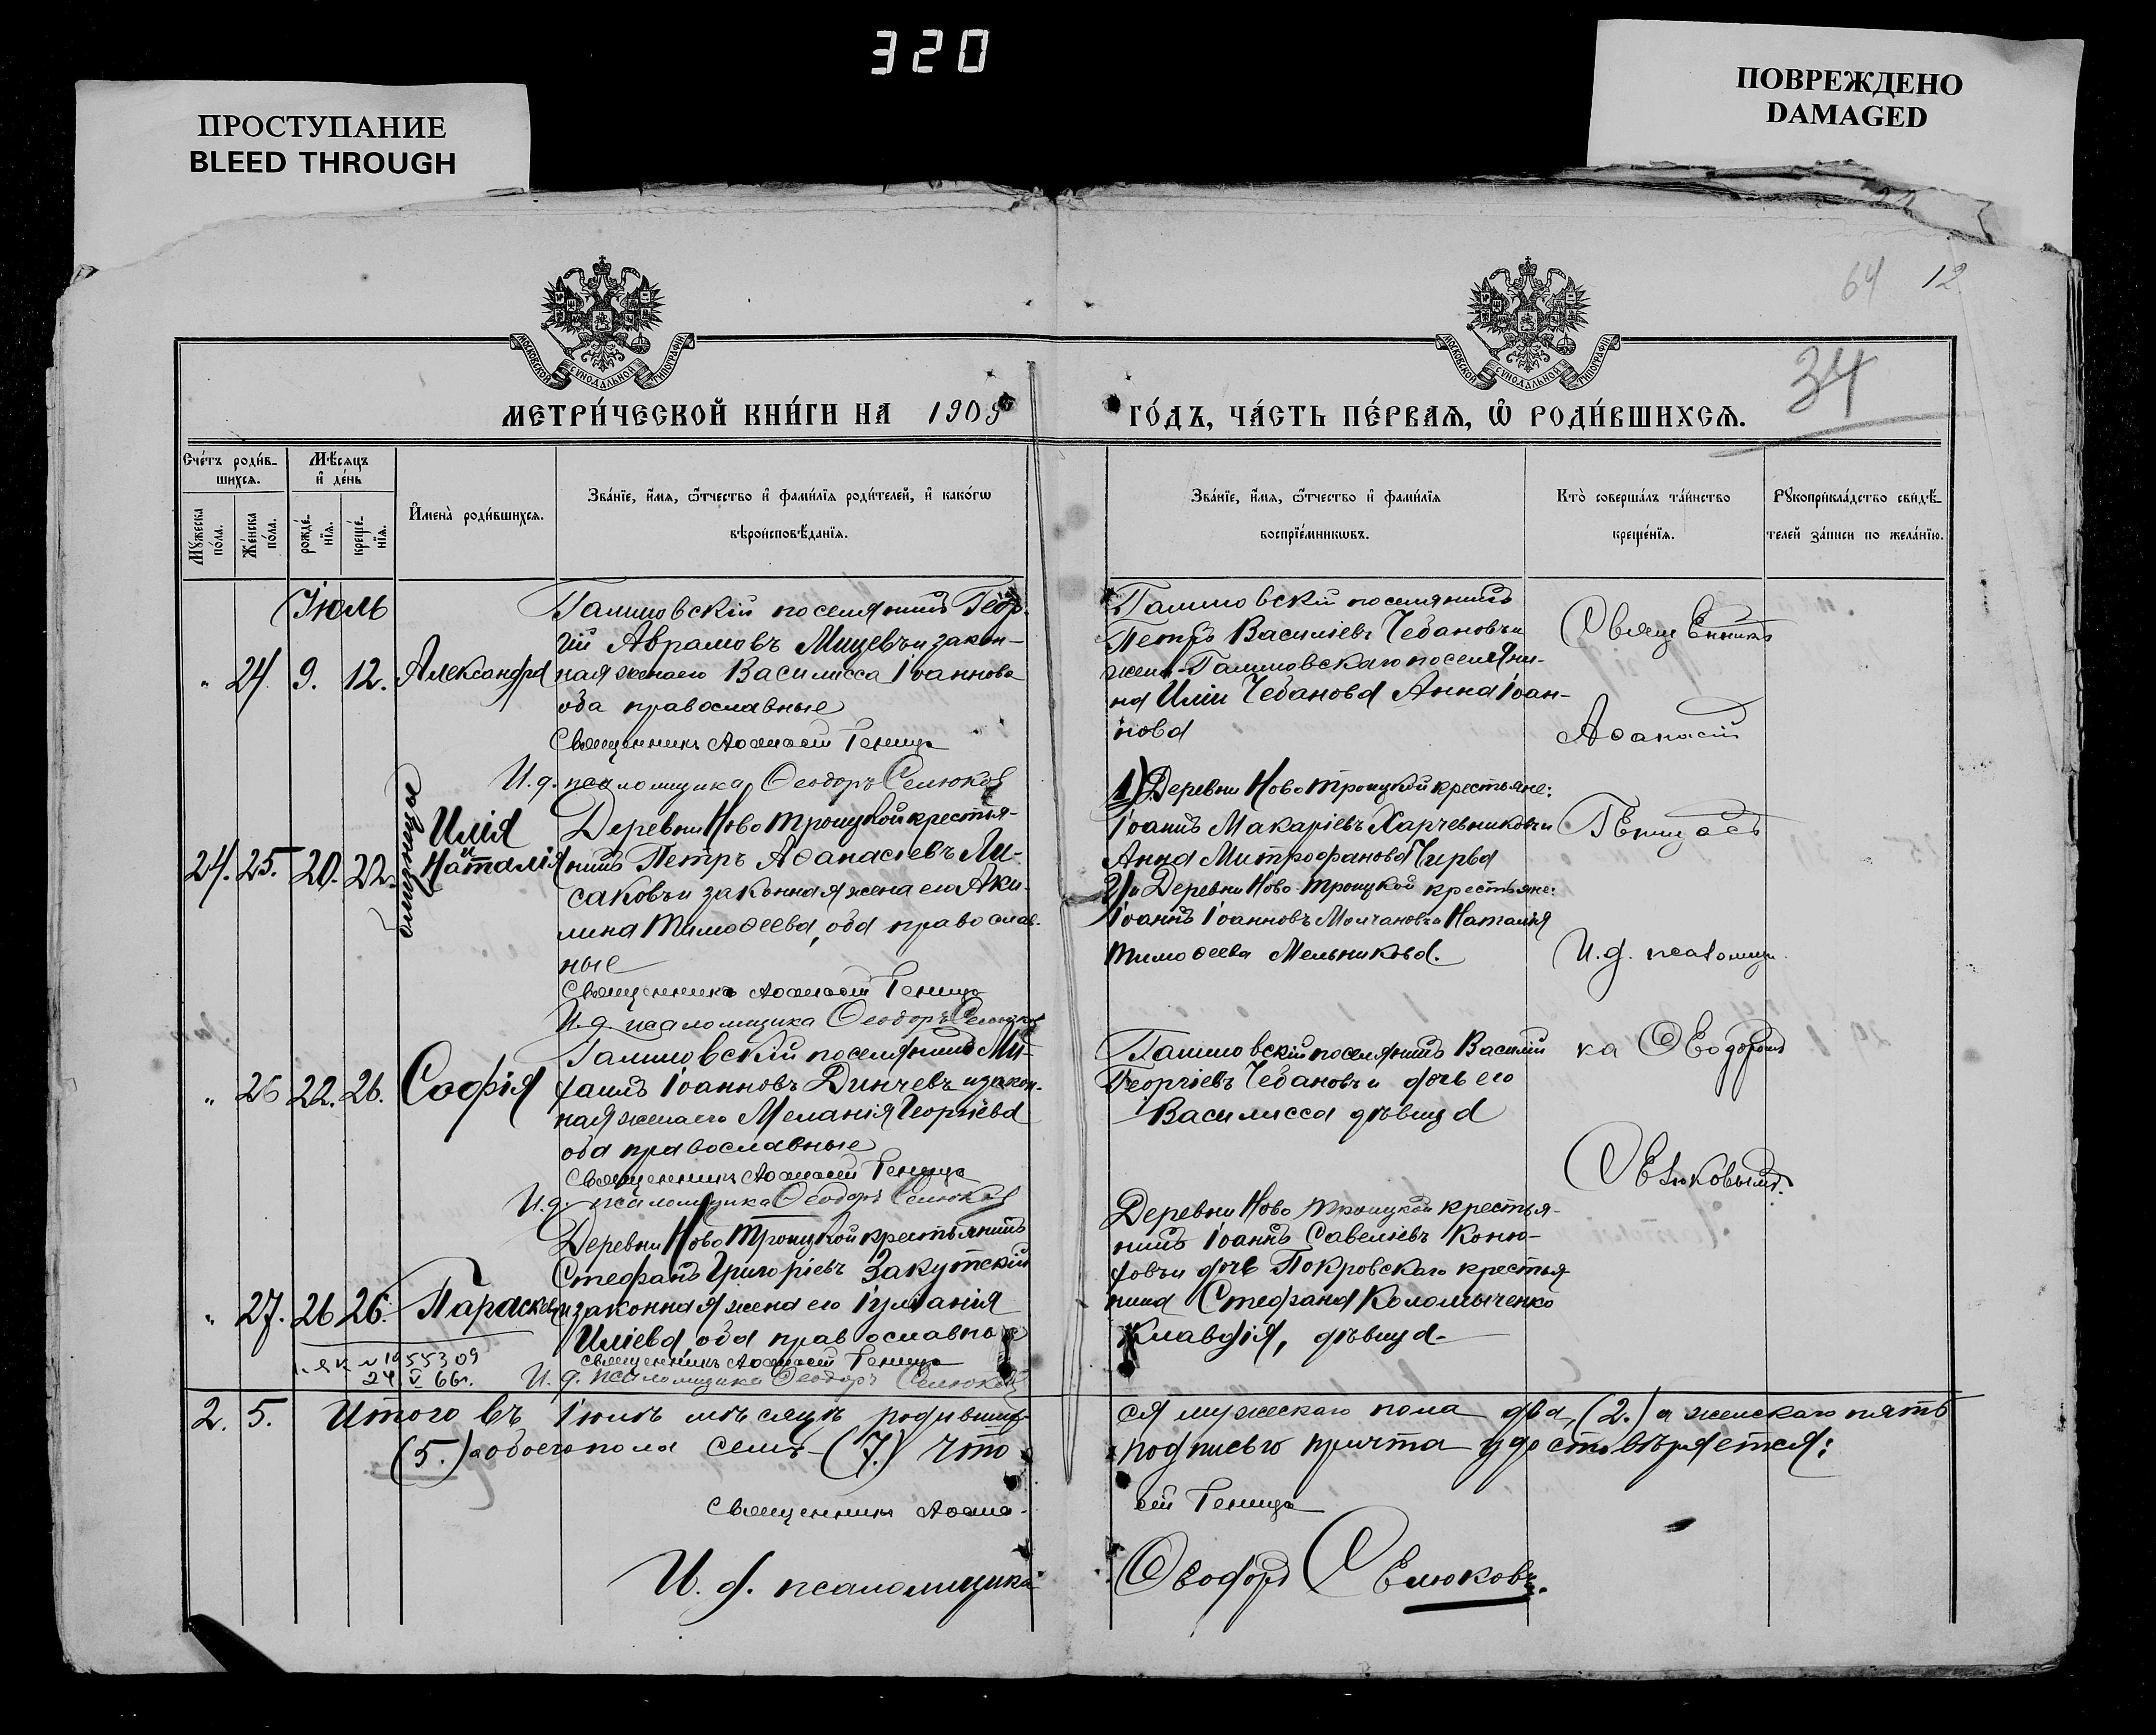 320
ПРОСТУПАНИЕ
BLEED THROUGH
ПОВРЕЖДЕНО
DAMAGED
64 12
34
МОСКОВСКОЙ СѴНОДАЛЬНОЙ ТИПОГРАФІИ
МОСКОВСКОЙ СѴНОДАЛЬНОЙ ТИПОГРАФІИ
МЕТРИ́ЧЕСКОЙ КНИ́ГИ НА 1909
ГО́ДЪ, ЧА́СТЬ ПЕ́РВАѦ, Ѡ҆ РОДИ́ВШИХСѦ.
Счéтъ роди́в-
шихсѧ.
Мꙋжеска по́ла.
Же́нска по́ла.
Мѣ́сѧцъ
и҆ де́нь
рожде́-
нїѧ.
креще́-
нїѧ.
И҆мена̀ роди́вшихсѧ.
Зва́нїе, и҆́мѧ, ѻ҆́тчество и҆ фами́лїѧ роди́телей, и҆ како́гѡ
вѣроисповѣ́данїѧ.
Зва́нїе, и҆́мѧ, ѻ҆́тчество и҆ фами́лїѧ
воспрїе́мникѡвъ.
Кто̀ соверша́лъ та́инство
креще́нїѧ.
Рꙋкоприкла́дство свидѣ́-
телей за́писи по жела́нїю.
Іюль
„ 24. 9. 12. Александра
Галицовскій поселянинъ Геор-
гій Аврамовъ Мицевъ и закон-
ная жена его Василисса Іоаннова
оба православные
Священникъ Аѳанасій Геница
И.д. псаломщика Ѳеодоръ Селюковъ
Галицовскій поселянинъ
Петръ Василіевъ Чебановъ и
жена Галицовскаго поселяни-
на Иліи Чебанова Анна Іоан-
нова
24. 25. 20. 22. Илія
и Наталія
Деревни Ново Троицкой крестья-
нинъ Петръ Аѳанасіевъ Ли-
саковъ и законная жена его Аки-
лина Тимоѳеева, оба православ-
ные
Священникъ Аѳанасій Геница
И.д. псаломщика Ѳеодоръ Селюковъ
1) Деревни Ново Троицкой крестьяне:
Іоаннъ Макаріевъ Харчевниковъ и
Анна Митрофанова Чирва
2) и Деревни Ново-Троицкой крестьяне:
Іоаннъ Іоанновъ Молчановъ и Наталія
Тимоѳеева Мельникова.
„ 26 22. 26. Софія
Галицовскій поселянинъ Ми-
хаилъ Іоанновъ Динчевъ и закон-
ная жена его Меланія Георгіева
оба православные
Священникъ Аѳанасій Геница
И.д. псаломщика Ѳеодоръ Селюковъ
Галицовскій поселянинъ Василій
Георгіевъ Чебановъ и дочь его
Василисса дѣвица
„ 27. 26 26. Параскева
Деревни Ново Троицкой крестьянинъ
Стефанъ Григоріевъ Закутскій
и законная жена его Іуліанія
Иліева, оба православные
Священникъ Аѳанасій Геница
И.д. псаломщика Ѳеодоръ Селюковъ
Деревни Ново Троицкой крестья-
нинъ Іоаннъ Савеліевъ Коню-
ховъ и дочь Покровскаго крестья
нина Стефана Коломыченко
Клавдія, дѣвица.
Священникъ
Аѳанасій
Геницасъ
И.д. псаломщи
ка Ѳеодоромъ
Селюковымъ.
1955309
24 V 66г.
2. 5. Итого въ Іюлѣ мѣсяцѣ родивших-
(5.) а обоего пола семь (7.) что
ся мужескаго пола два, (2.) а женскаго пять
подписью причта удостовѣряется:
Священникъ Аѳана-
сій Геница
И.д. псаломщика
Ѳеодоръ Селюковъ.